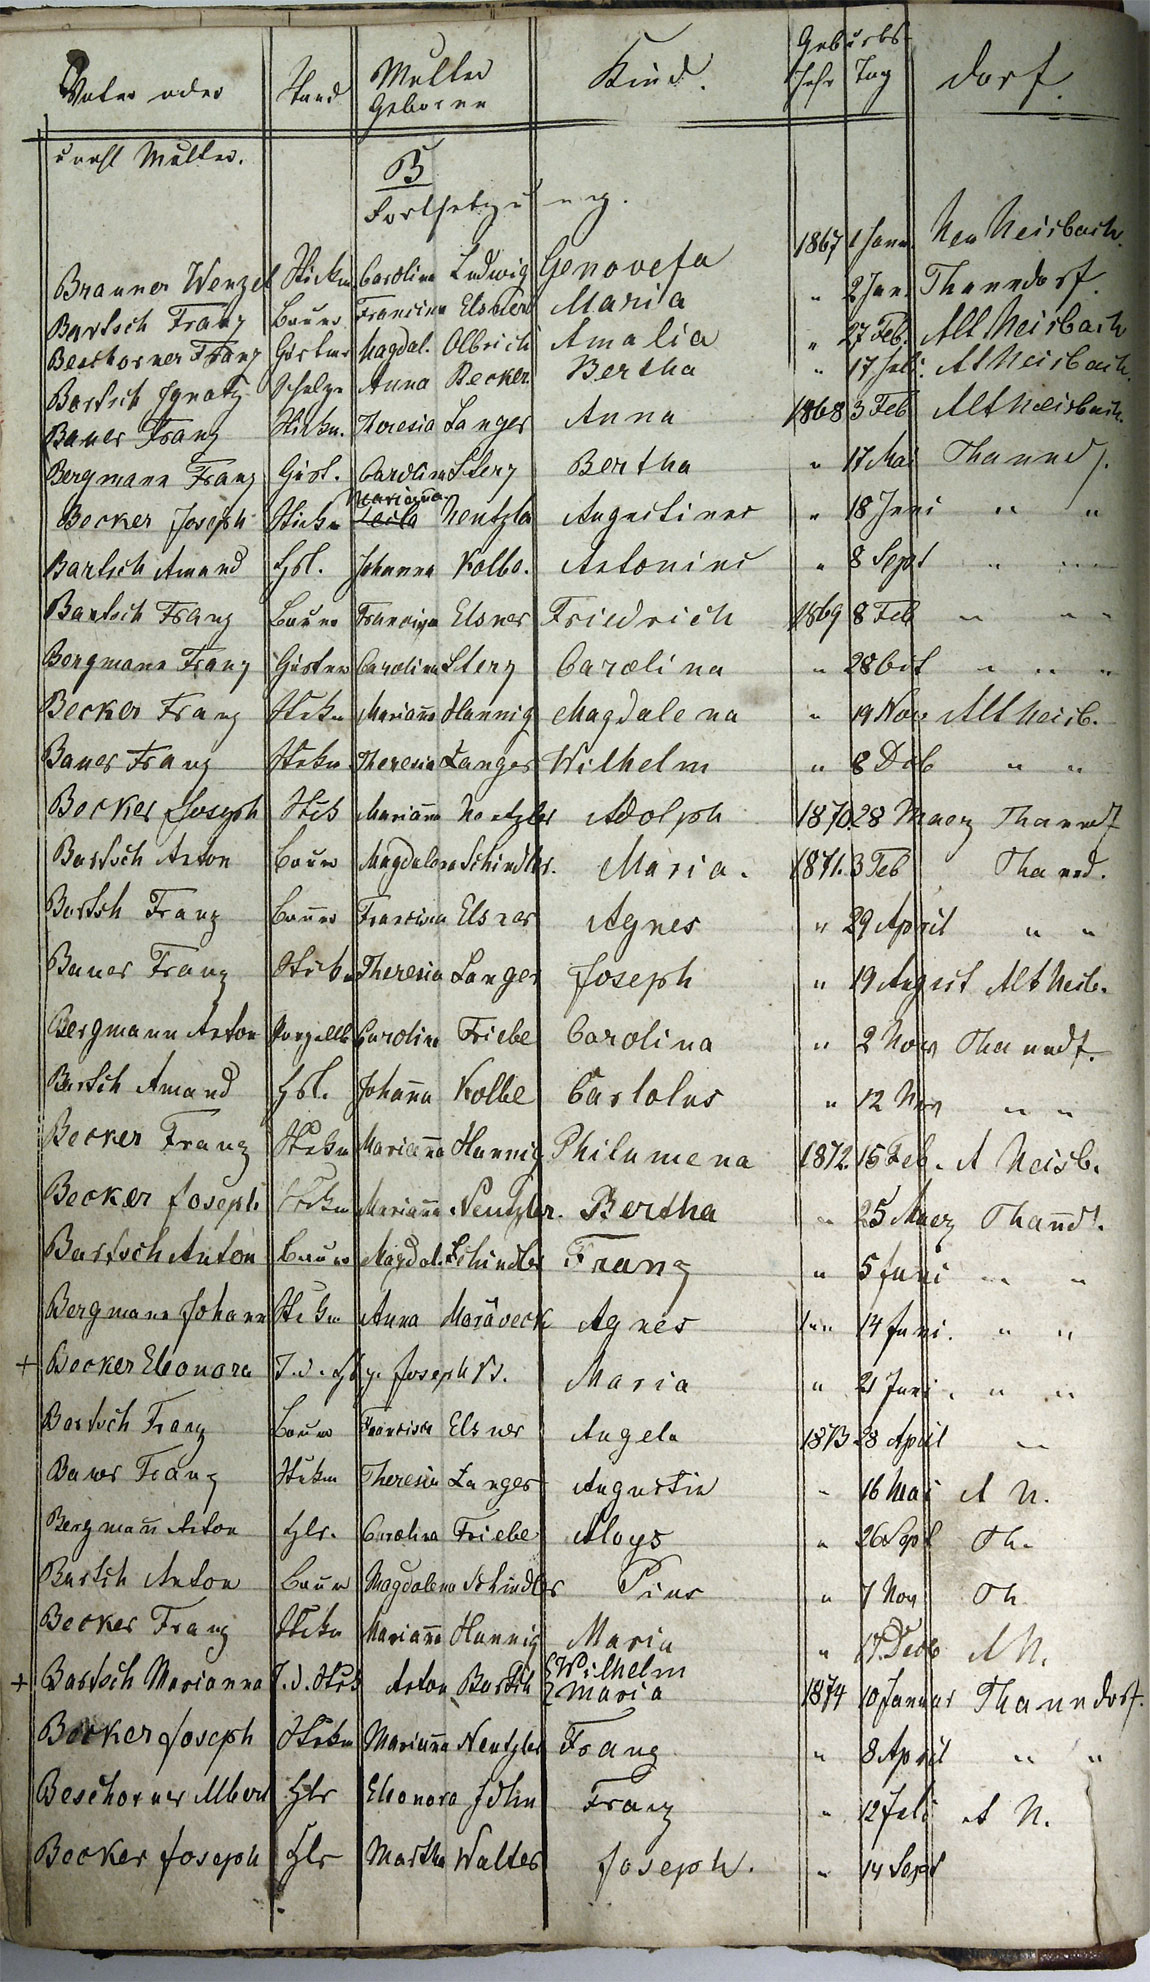 Vater oder Stand Mutter Geborne Kind. Geburts- Jahr Tag Dorf.
unehl Mutter.
B
Fortsetzung.
Brauner Wenzel Stckm Carolina Ludwig Genovefa 1867 1 Janu. Neu Neisbach.
Bartsch Franz Bauer Francisca Elsner Maria " 2 Jan. Thanndorf.
Beschorner Franz Gärtner Magdal. Olbrich Amalia " 27 Feb. Alt Neisbach
Bartsch Ignatz Scholze Anna Becker Bertha " 17 Juli. Alt Neisbach.
Bauer Franz Stckm. Theresia Langer Anna 1868 3 Feb Alt Neisbach.
Bergmann Franz Gärt. Carolina Sterz Bertha " 17 Mai Thannd f.
Becker Joseph Stckm Marianna Neutzler Augustinus " 18 Juni " "
Bartsch Amand Hsl. Johanna Kolbe. Antonius " 8 Sept " "
Bartsch Franz Bauer Francisca Elsner Friedrich 1869 8 Feb " "
Bergmann Franz Gärtner Carolina Sterz Carolina " 28 Oct " " "
Becker Franz Stckm Marianna Hannig Magdalena " 19 Nov Alt Neisb.
Bauer Franz Stckm Theresia Langer Wilhelm " 8 Deb " "
Becker Joseph Stck Mariana Neutzler Adolph 1870. 28 Maerz Thanndf
Bartsch Anton Bauer Magdalena Schindler. Maria. 1871. 3 Feb Thannd.
Bartsh Franz Bauer Francisca Elsner Agnes " 29 April " "
Bauer Franz Stckm Theresia Langer Joseph " 19 August Alt Neisb.
Bergmann Anton Parzellb Carolina Friebe Carolina " 2 Nov Thanndf.
Bartsch Amand Hsl. Johanna Kolbe Carlolus " 12 Nov " "
Becker Franz Stckm Marianna Hannig Philumena 1872. 15 Feb. A Neisb.
Becker Joseph Stckm Marianna Neutzler. Bertha " 25 Maerz Thanndf.
Bartsch Anton Bauer Magdal. Schindler Franz " 5 Juni " "
Bergmann Johann Stckm Anna Moraveck Agnes " 14 Juni. " "
+ Becker Eleonora T. d. Hsl g. Joseph B. Maria " 21 Juni. " "
Bartsch Franz Bauer Francisca Elsner Angela 1873 28 April "
Bauer Franz Stckm Theresia Langer Augustin " 16 Mai A N.
Bergmann Anton Hlr. Carolina Friebe Aloys " 26 Sept Th.
Bartsch Anton Bauer Magdalena Schindler Pius " 7 Nov Th
Becker Franz Stckm Marianna Hannig Maria " 17 Deb A N.
+ Bartsch Marianna T. d. Stck Anton Bartsch { Wilhelm
Maria 1874 10 Januar Thanndorf.
Becker Joseph Stckm Marianna Neutzler Franz " 8 April " "
Beschorner Albert Hlr Eleonora John Franz " 12 Juli A N.
Becker Joseph Hlr Martha Walter Joseph. " 14 Sept